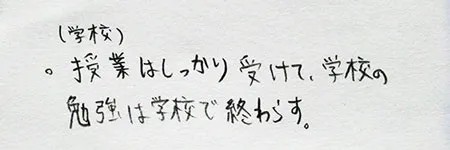 (学校)
。授業はしっかり受けて、学校の
勉強は学校で終わらす。